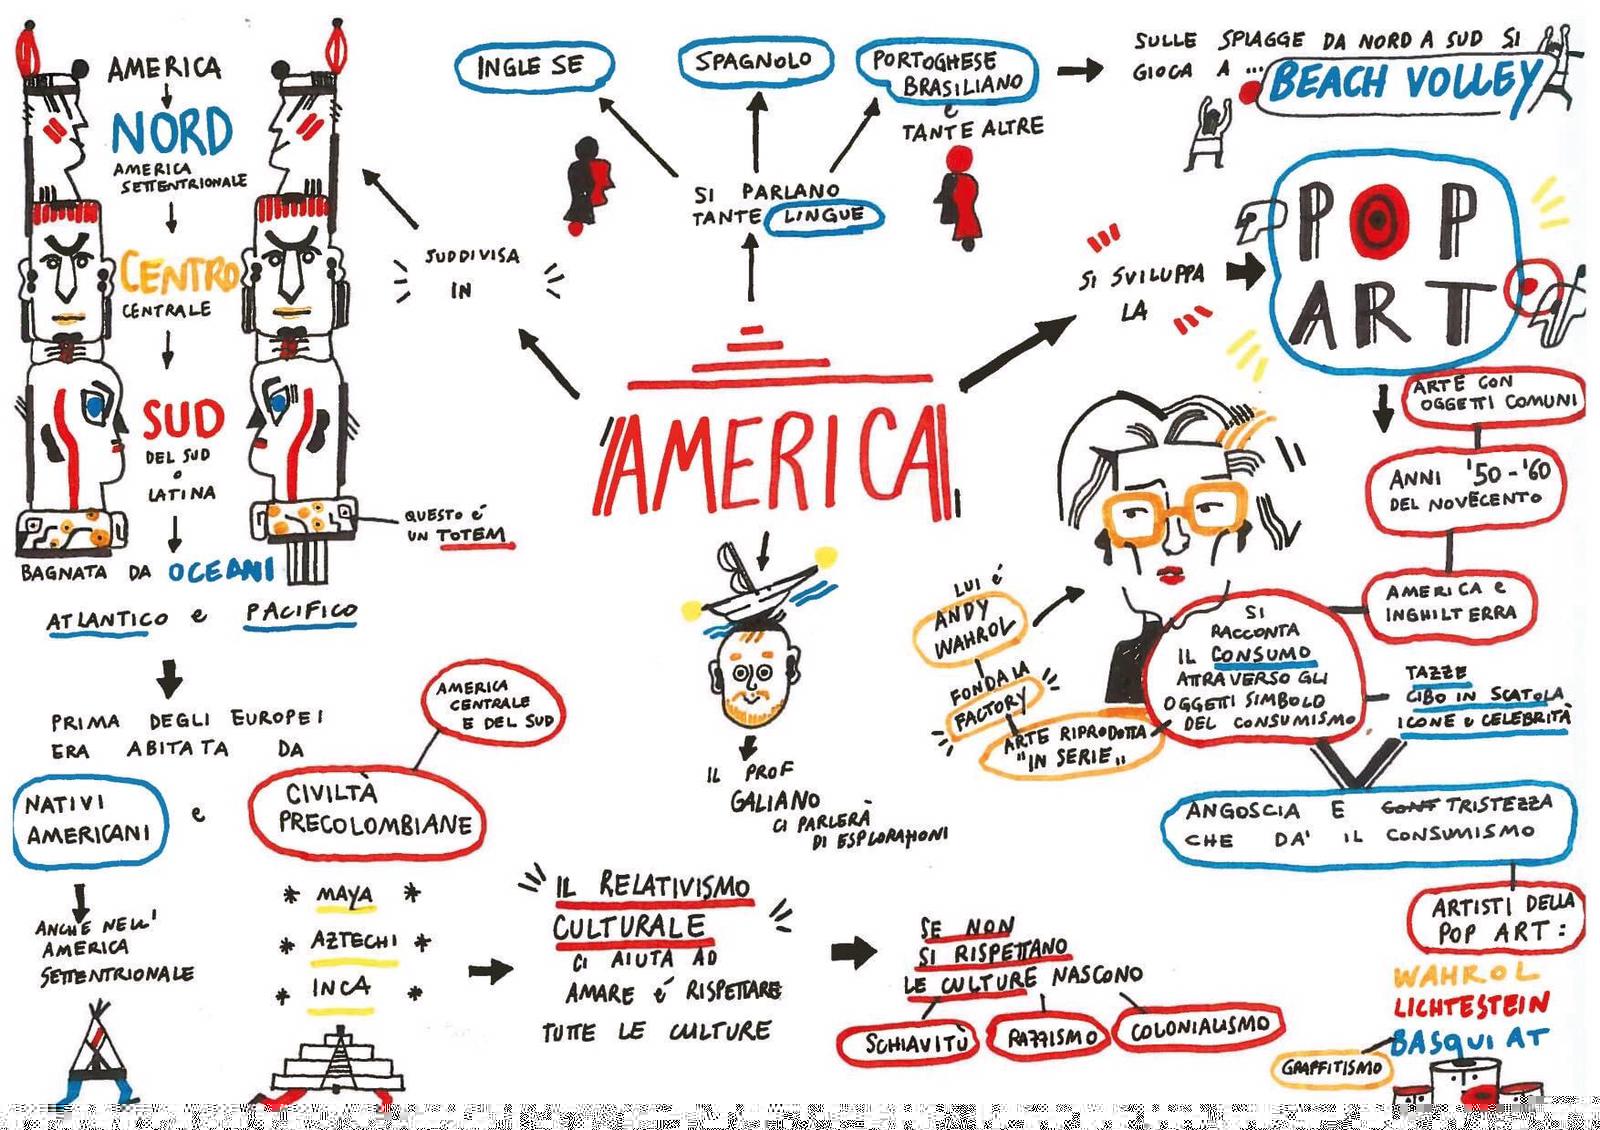 AMERICA
NORD
AMERICA
SETTENTRIONALE
CENTRO
CENTRALE
SUD
DEL SUD
O
LATINA
BAGNATA DA OCEANI
ATLANTICO e PACIFICO
QUESTO é
UN TOTEM
SUDDIVISA
IN
INGLESE
SPAGNOLO
PORTOGHESE
BRASILIANO
e
TANTE ALTRE
SI PARLANO
TANTE LINGUE
SULLE SPIAGGE DA NORD A SUD SI
GIOCA A ...
BEACH VOLLEY
SI SVILUPPA
LA
POP
ART
AMERICA
ARTE CON
OGGETTI COMUNI
ANNI '50-'60
DEL NOVECENTO
AMERICA e
INGHILTERRA
LUI é
ANDY
WAHROL
FONDA LA
FACTORY
ARTE RIPRODOTTA
"IN SERIE"
SI
RACCONTA
IL CONSUMO
ATTRAVERSO GLI
OGGETTI SIMBOLO
DEL CONSUMISMO
TAZZE
CIBO IN SCATOLA
ICONE e CELEBRITÀ
ANGOSCIA E CONT TRISTEZZA
CHE DA' IL CONSUMISMO
ARTISTI DELLA
POP ART:
WAHROL
LICHTESTEIN
BASQUIAT
GRAFFITISMO
IL PROF
GALIANO
CI PARLERÀ
DI ESPLORAZIONI
PRIMA DEGLI EUROPEI
ERA ABITATA DA
NATIVI
AMERICANI
e
CIVILTÀ
PRECOLOMBIANE
AMERICA
CENTRALE
E DEL SUD
ANCHE NELL'
AMERICA
SETTENTRIONALE
* MAYA *
* AZTECHI *
* INCA *
IL RELATIVISMO
CULTURALE
CI AIUTA AD
AMARE é RISPETTARE
TUTTE LE CULTURE
SE NON
SI RISPETTANO
LE CULTURE NASCONO
SCHIAVITÙ
RAZZISMO
COLONIALISMO